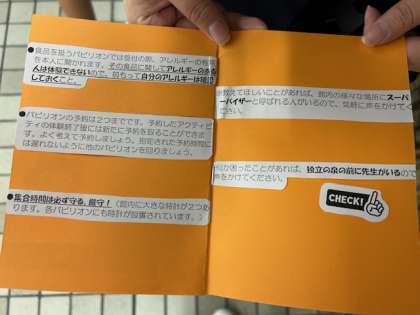 ●食品を扱うパビリオンでは受付の際、アレルギーの有無
を本人に聞かれます。その食品に関してアレルギーのある
人は体験できないので、前もって自分のアレルギーは確認
しておくこと。
●パビリオンの予約は2つまでです。予約したアクティビ
ティの体験終了後には新たに予約を取ることができま
す。よく考えて予約しましょう。指定された予約時間に
は遅れないように他のパビリオンを回りましょう。
●集合時間は必ず守る。厳守！（館内に大きな時計が2つあ
ります。各パビリオンにも時計が設置されています。）
教えてほしいことがあれば、館内の様々な場所にスーパ
ーバイザーと呼ばれる人がいるので、気軽に声をかけてく
ださい。
何か困ったことがあれば、独立の泉の前に先生がいるので
声をかけてください。
CHECK!